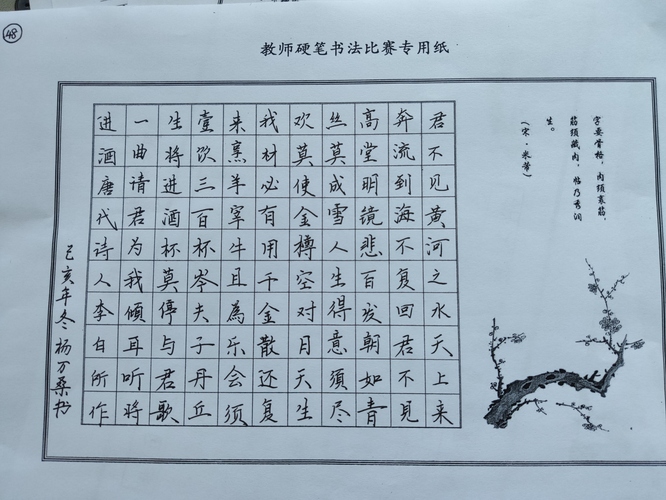 48
教师硬笔书法比赛专用纸
字要骨格，肉须裹筋，
筋须藏肉，帖乃秀润
生。
（宋·米芾）
君不见黄河之水天上来
奔流到海不复回君不見
高堂明镜悲百发朝如青
丝莫成雪人生得意須尽
欢莫使金樽空对月天生
我材必有用千金散还复
来烹羊宰牛且為乐会须
壹饮三百杯岑夫子丹丘
生将进酒杯莫停与君歌
一曲请君为我倾耳听将
进酒唐代诗人李白所作
己亥年冬杨万桑书